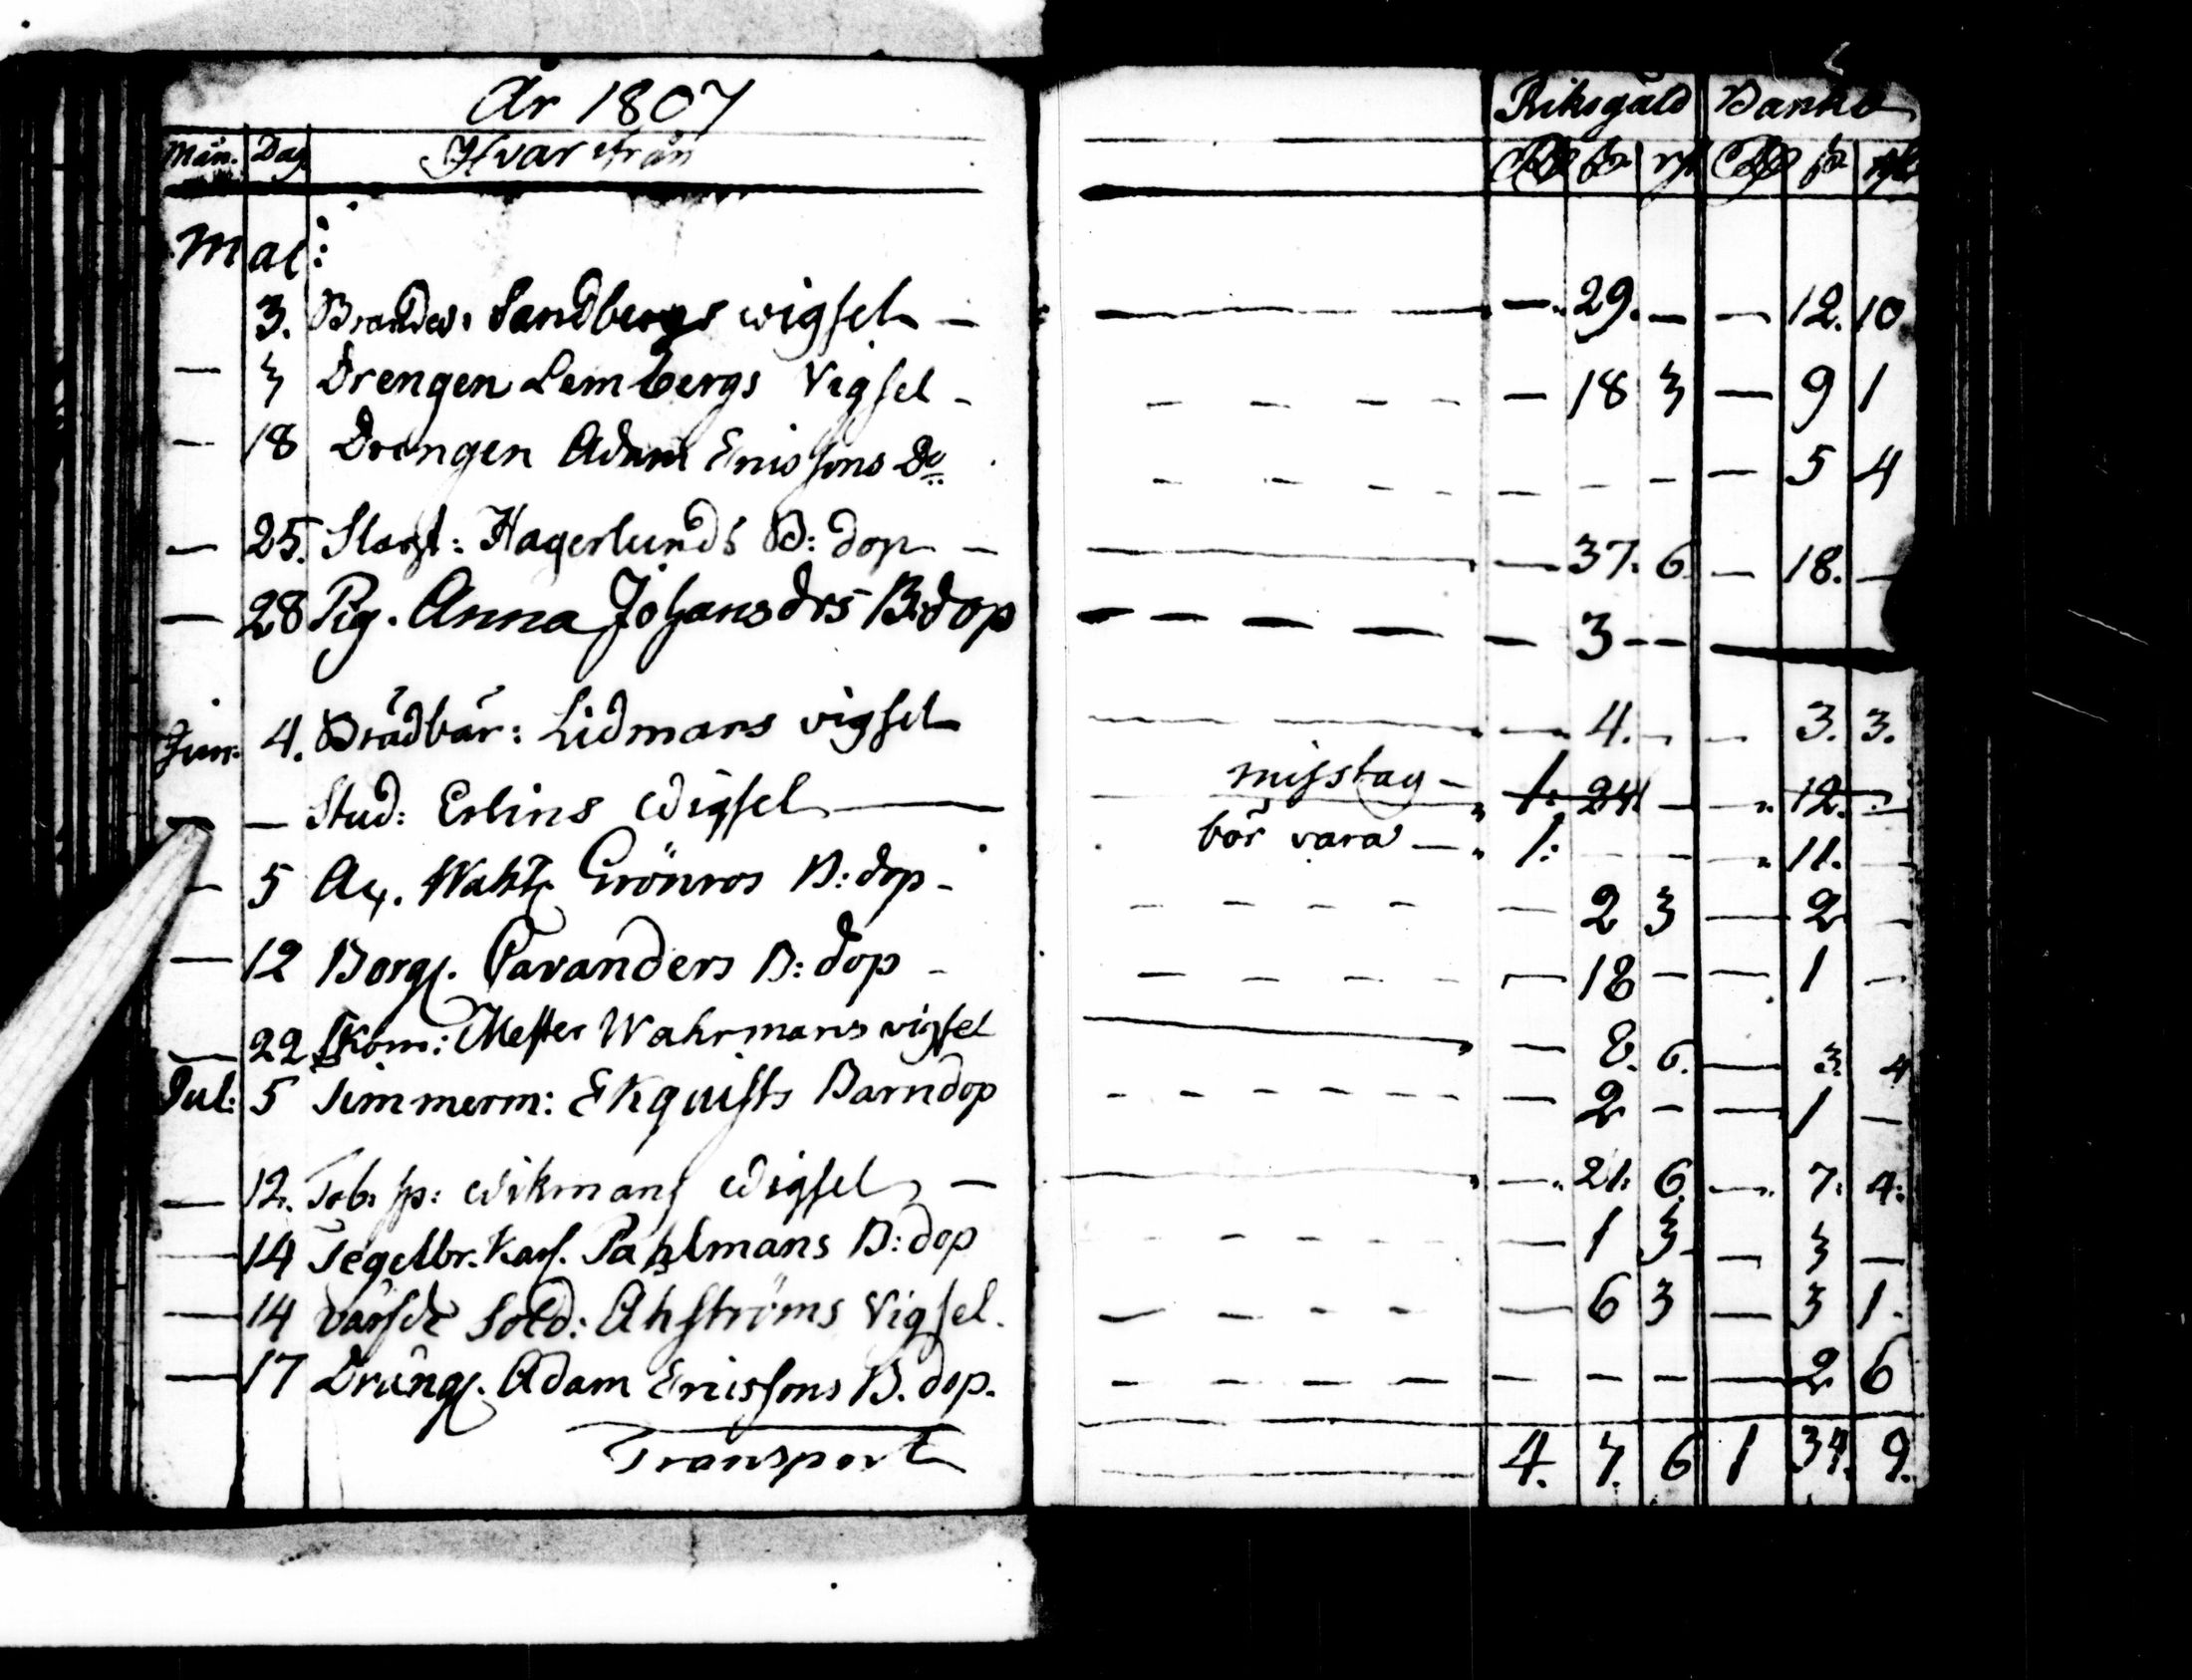 År 1807 Riksgäld Banko
Mån. Dag Hvar ifrån Rd ß rst Rd ß rst
Mai:
3. Sandbergs wigsel — — 29. — — 12. 10
— 3 Drengen Lembergs Vigsel - — 18 3 — 9 1
— 18 Drengen Adam Ericssons Do — — — — 5 4
— 25. Hagerlunds B: dop — — 37. 6 — 18. —
— 28 Pig. Anna Johansdrs B:dop — 3 — —
Jun: 4. Brädbär: Lidmans vigsel — 4. — — 3. 3.
— — Stud: Erlins Wigsel — misstag — 1. 24 — — 12. —
bör vara — 1: — — — 11. —
— 5 Grönros B: dop - — 2 3 — 2 —
— 12 Borg. Pavanders B: dop - — 18 — — 1 —
— 22 Skom: Mester Wahrmans vigsel — 8. 6. — 3. 4
Jul: 5 Timmerm: Ekquists Barndop — 2 — — 1 —
— 12. Tob. sp: Wikmans Wigsel — — 21. 6. — 7. 4.
— 14 Tegelbr. Karl. Pahlmans B: dop — 1 3 — 3 —
— 14 Sold: Ahströms Vigsel. — 6 3 — 3 1.
— 17 Dräng. Adam Ericssons B. dop. — — — — 2 6
Transport 4. 7. 6 1 34. 9.